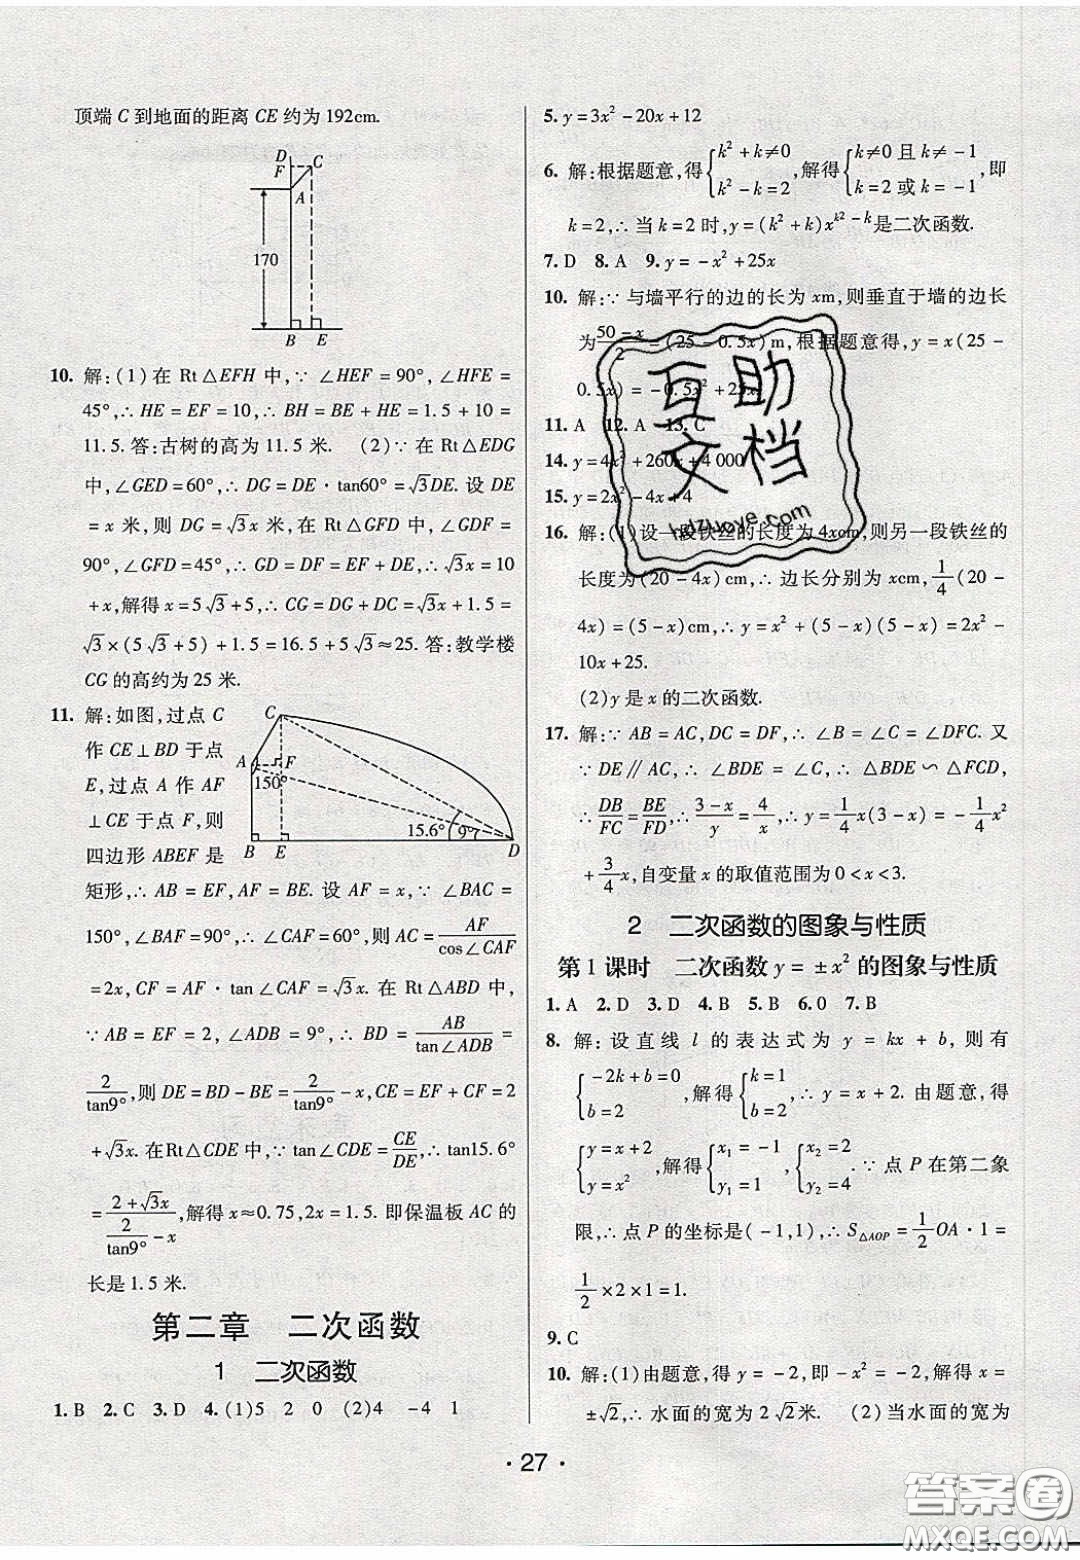 顶端 C 到地面的距离 CE 约为 192cm.
D
F C
A
170
B E
10. 解:(1)在 Rt△EFH 中,∵ ∠HEF = 90°,∠HFE =
45°,∴ HE = EF = 10,∴ BH = BE + HE = 1.5 + 10 =
11.5. 答:古树的高为 11.5 米. (2)∵ 在 Rt△EDG
中,∠GED = 60°,∴ DG = DE · tan60° = √3DE. 设 DE
= x 米,则 DG = √3x 米,在 Rt△GFD 中,∠GDF =
90°,∠GFD = 45°,∴ GD = DF = EF + DE,∴ √3x = 10
+ x,解得 x = 5√3 + 5,∴ CG = DG + DC = √3x + 1.5 =
√3 × (5√3 + 5) + 1.5 = 16.5 + 5√3 ≈ 25. 答:教学楼
CG 的高约为 25 米.
11. 解:如图,过点 C
作 CE ⊥ BD 于点
E,过点 A 作 AF
⊥ CE 于点 F,则
四边形 ABEF 是
C
A F
150°
15.6° 9°
B E D
矩形,∴ AB = EF,AF = BE. 设 AF = x,∵ ∠BAC =
150°,∠BAF = 90°,∴ ∠CAF = 60°,则 AC = AF/cos∠CAF
= 2x,CF = AF · tan∠CAF = √3x. 在 Rt△ABD 中,
∵ AB = EF = 2,∠ADB = 9°,∴ BD = AB/tan∠ADB =
2/tan9°,则 DE = BD - BE = 2/tan9° - x,CE = EF + CF = 2
+ √3x. 在 Rt△CDE 中,∵ tan∠CDE = CE/DE,∴ tan15.6°
= (2 + √3x)/(2/tan9° - x),解得 x ≈ 0.75,2x = 1.5. 即保温板 AC 的
长是 1.5 米.
第二章 二次函数
1 二次函数
1. B 2. C 3. D 4. (1)5 2 0 (2)4 -4 1
5. y = 3x² - 20x + 12
6. 解:根据题意,得{k² + k ≠ 0 k² - k = 2,解得{k ≠ 0 且 k ≠ -1 k = 2 或 k = -1,即
k = 2,∴ 当 k = 2 时,y = (k² + k)x^(k² - k) 是二次函数.
7. D 8. A 9. y = -x² + 25x
10. 解:∵ 与墙平行的边的长为 xm,则垂直于墙的边长
为 (50 - x)/2 = (25 - 0.5x)m,根据题意得,y = x(25 -
0.5x) = -0.5x² + 25x.
11. A 12. A 13. C
14. y = 4x² + 260x + 4 000
15. y = 2x² - 4x + 4
16. 解:(1)设一段铁丝的长度为 4xcm,则另一段铁丝的
长度为(20 - 4x)cm,∴ 边长分别为 xcm,1/4(20 -
4x) = (5 - x)cm,∴ y = x² + (5 - x)(5 - x) = 2x² -
10x + 25.
(2)y 是 x 的二次函数.
17. 解:∵ AB = AC,DC = DF,∴ ∠B = ∠C = ∠DFC. 又
∵ DE∥AC,∴ ∠BDE = ∠C,∴ △BDE ∽ △FCD,
∴ DB/FC = BE/FD,∴ (3 - x)/y = 4/x,∴ y = 1/4 x(3 - x) = -1/4 x²
+ 3/4 x,自变量 x 的取值范围为 0 < x < 3.
2 二次函数的图象与性质
第 1 课时 二次函数 y = ±x² 的图象与性质
1. A 2. D 3. D 4. B 5. B 6. 0 7. B
8. 解:设直线 l 的表达式为 y = kx + b,则有
{-2k + b = 0 b = 2,解得{k = 1 b = 2,∴ y = x + 2. 由题意,得
{y = x + 2 y = x²,解得{x₁ = -1 y₁ = 1,{x₂ = 2 y₂ = 4. ∵ 点 P 在第二象
限,∴ 点 P 的坐标是(-1,1),∴ S△AOP = 1/2 OA · 1 =
1/2 × 2 × 1 = 1.
9. C
10. 解:(1)由题意,得 y = -2,即 -x² = -2,解得 x =
±√2,∴ 水面的宽为 2√2米. (2)当水面的宽为
· 27 ·
互助
文档
hdzuoye.com
答案卷
MXQE.COM